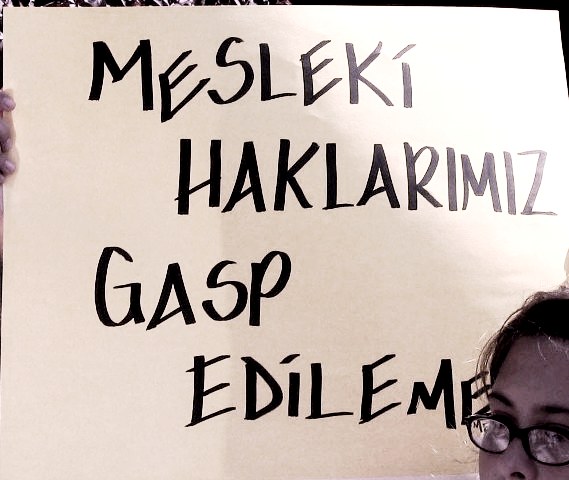 MESLEKİ
HAKLARIMIZ
GASP
EDİLEME